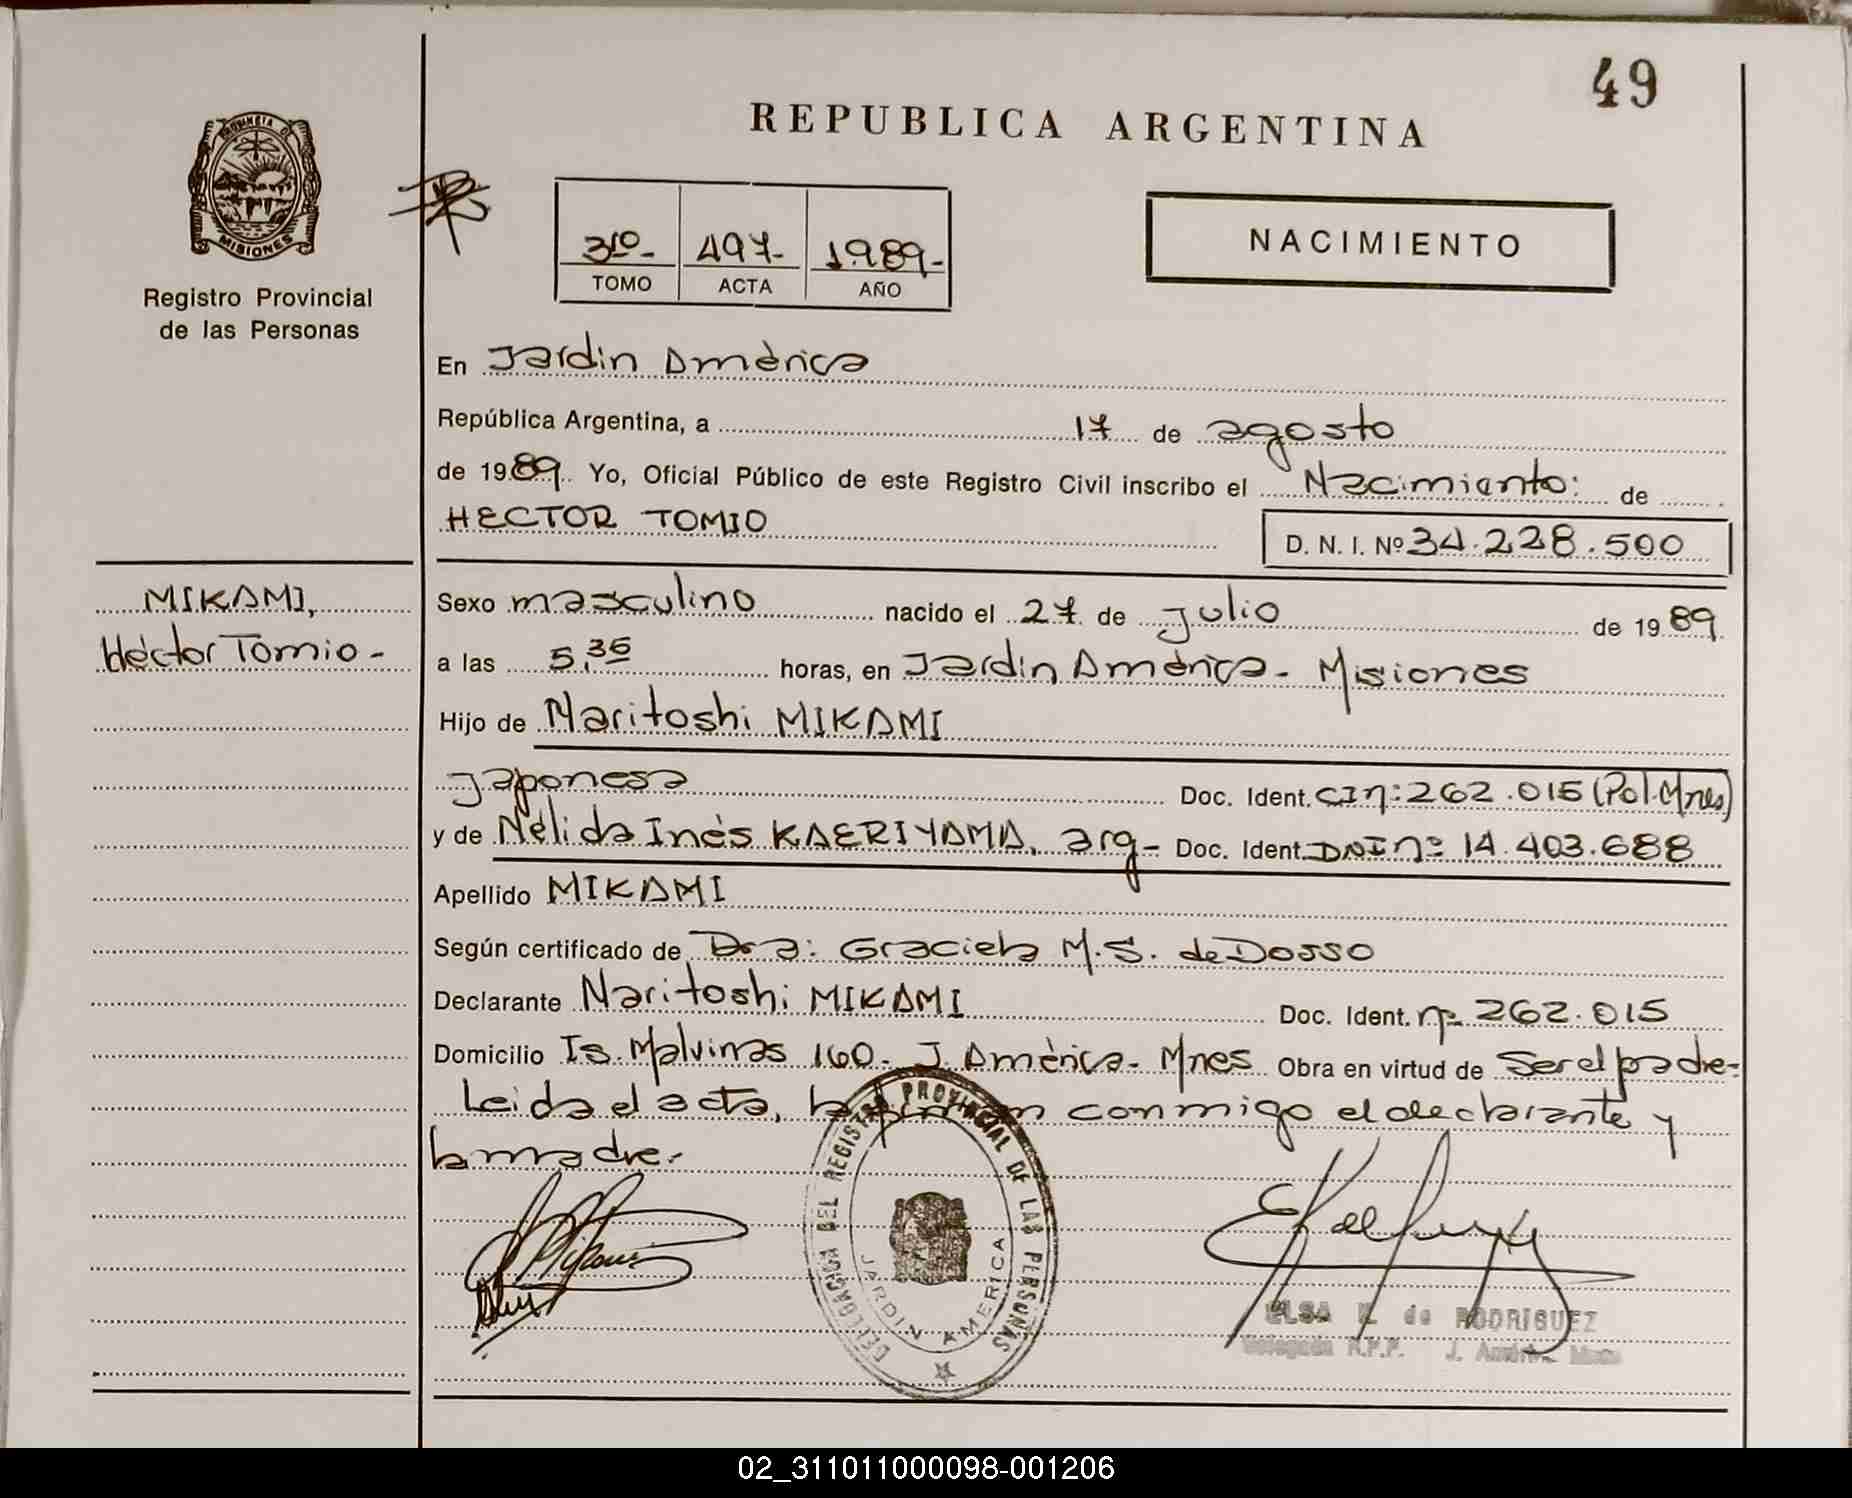 49
REPUBLICA ARGENTINA
PROVINCIA DE
MISIONES
Registro Provincial
de las Personas
3ro- 497- 1989-
TOMO ACTA AÑO
NACIMIENTO
En Jardin América
República Argentina, a 17 de agosto
de 1989. Yo, Oficial Público de este Registro Civil inscribo el Nacimiento: de
HECTOR TOMIO
D. N. I. Nº 34.228.500
MIKAMI,
Héctor Tomio-
Sexo masculino nacido el 27 de julio de 1989
a las 5,35 horas, en Jardin América- Misiones
Hijo de Naritoshi MIKAMI
japonesa Doc. Ident. CInº: 262.015 (Pol. Mnes)
y de Nélida Inés KAERIYAMA, arg- Doc. Ident. DNI nº 14.403.688
Apellido MIKAMI
Según certificado de Dra: Graciela M.S. de Dosso
Declarante Naritoshi MIKAMI Doc. Ident. nº 262.015
Domicilio Is. Malvinas 160- J. América- Mnes Obra en virtud de Ser el padre-
Leida el acta, la firman conmigo el declarante y
la madre.-
DELEGACION DEL REGISTRO PROVINCIAL DE LAS PERSONAS
JARDIN AMERICA
ELSA K. de RODRÍGUEZ
Delegada R.P.P. J. América
02_311011000098-001206